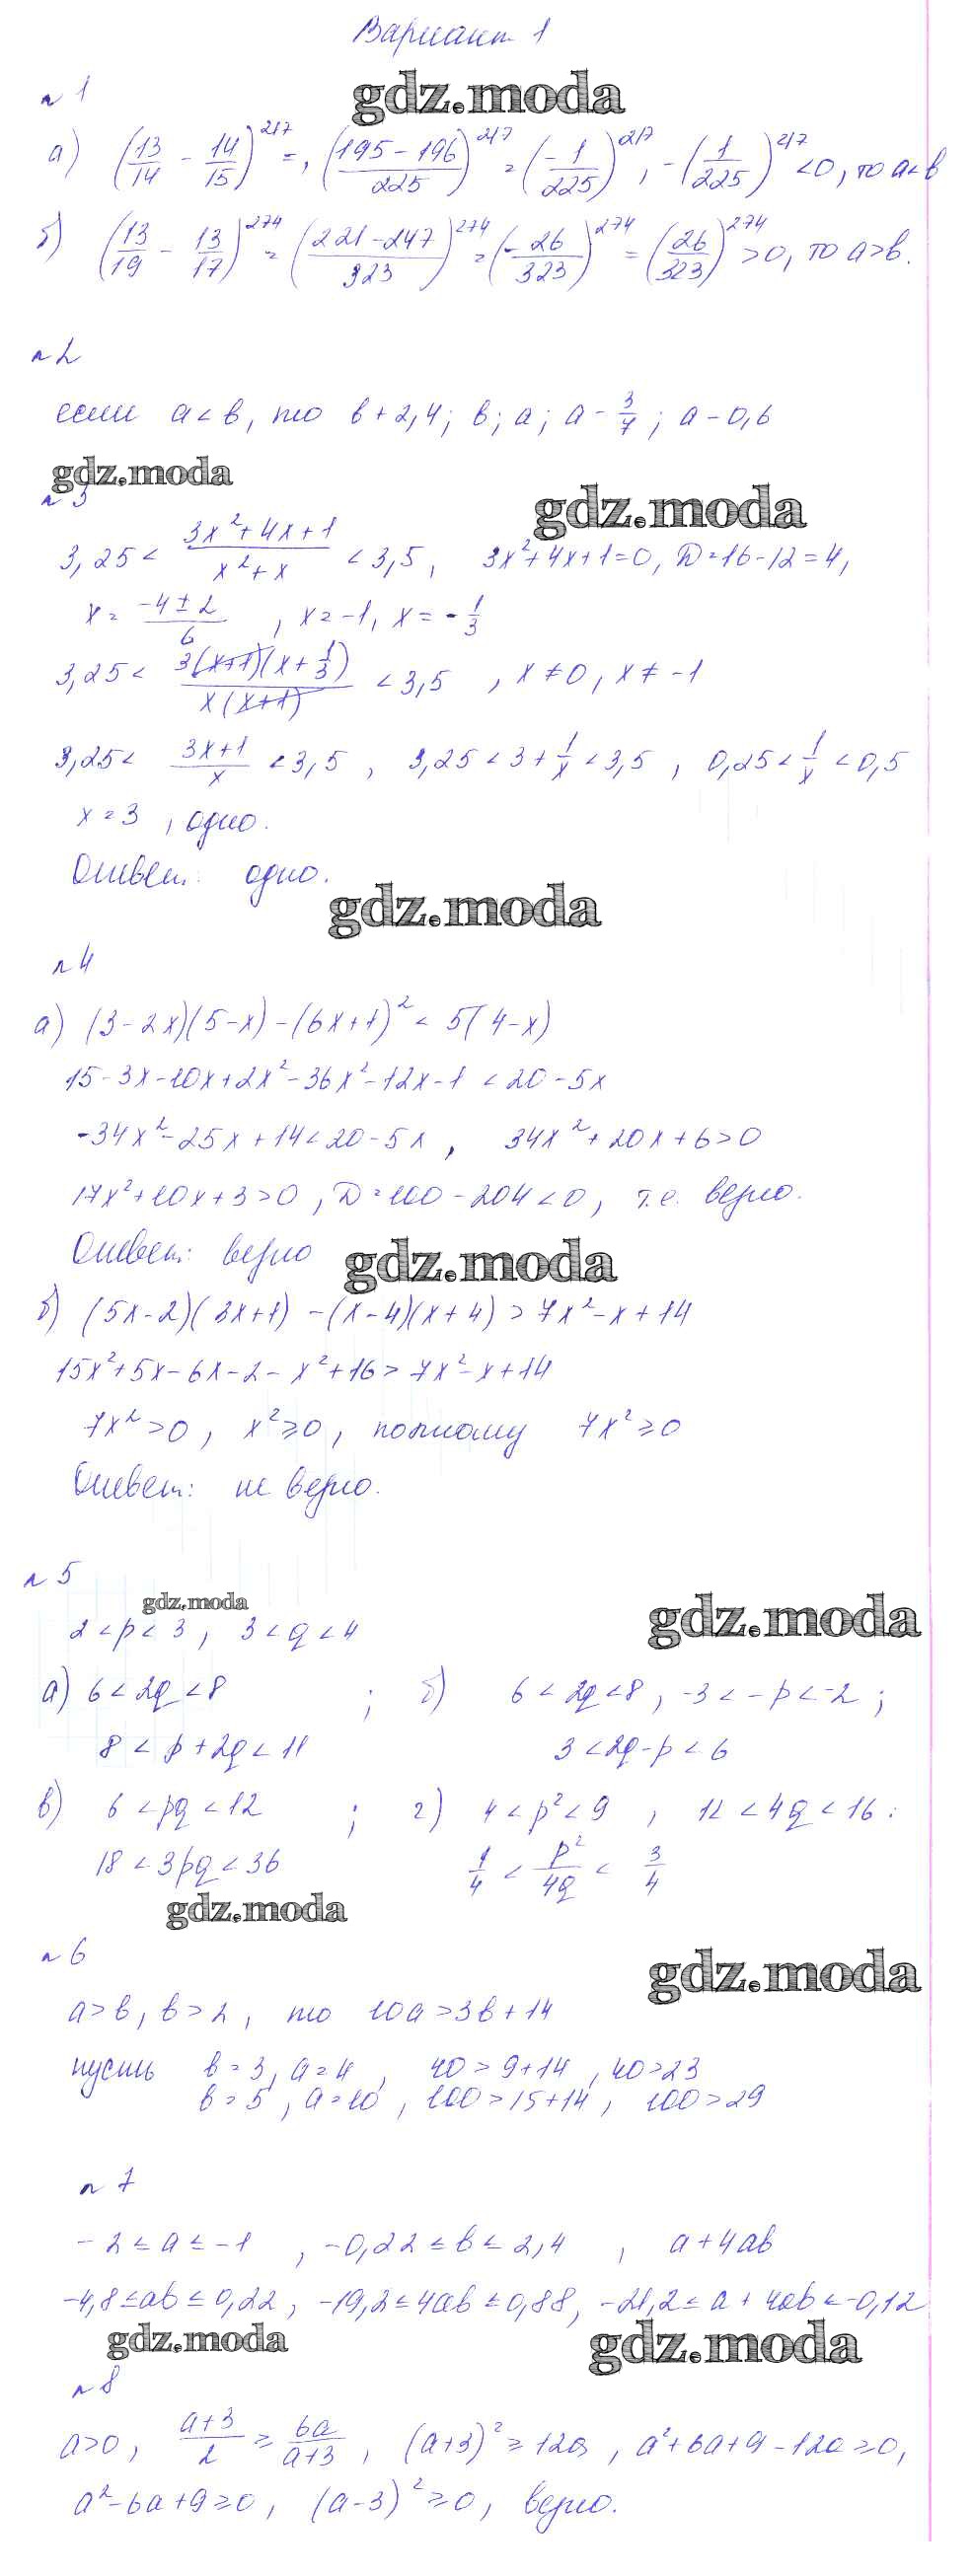 Вариант 1
gdz.moda
№1
а) (13/14 − 14/15)^217 =, ((195−196)/225)^217 = (−1/225)^217, −(1/225)^217 <0, то a<b
б) (13/19 − 13/17)^274 = ((221−247)/323)^274 = (−26/323)^274 = (26/323)^274 >0, то a>b.
№2
если a<b, то b+2,4; b; a; a−3/7; a−0,6
gdz.moda
№3
gdz.moda
3,25 < (3x²+4x+1)/(x²+x) <3,5, 3x²+4x+1=0, D=16−12=4,
x= (−4±2)/6, x=−1, x=−1/3
3,25 < 3(x+1)(x+1/3)/(x(x+1)) <3,5, x≠0, x≠−1
3,25 < (3x+1)/x <3,5, 3,25<3+1/x<3,5, 0,25<1/x<0,5
x=3, одно.
Ответ: одно.
gdz.moda
№4
а) (3−2x)(5−x)−(6x+1)² < 5(4−x)
15−3x−10x+2x²−36x²−12x−1 <20−5x
−34x²−25x+14<20−5x, 34x²+20x+6>0
17x²+10x+3>0, D=100−204<0, т.е. верно.
Ответ: верно
gdz.moda
б) (5x−2)(3x+1)−(x−4)(x+4)>7x²−x+14
15x²+5x−6x−2−x²+16>7x²−x+14
7x²>0, x²≥0, поэтому 7x²≥0
Ответ: не верно.
№5
gdz.moda
gdz.moda
2<p<3, 3<q<4
а) 6<2q<8 ; б) 6<2q<8, −3<−p<−2;
8<p+2q<11 3<2q−p<6
в) 6<pq<12 ; г) 4<p²<9, 12<4q<16:
18<3pq<36 1/4 < p²/4q < 3/4
gdz.moda
№6
gdz.moda
a>b, b>2, то 10a>3b+14
пусть b=3, a=4, 40>9+14, 40>23
b=5, a=10, 100>15+14, 100>29
№7
−2≤a≤−1, −0,22≤b≤2,4, a+4ab
−4,8≤ab≤0,22, −19,2≤4ab≤0,88, −21,2≤a+4ab≤−0,12
gdz.moda
gdz.moda
№8
a>0, (a+3)/2 ≥ 6a/(a+3), (a+3)²≥12a, a²+6a+9−12a≥0,
a²−6a+9≥0, (a−3)²≥0, верно.